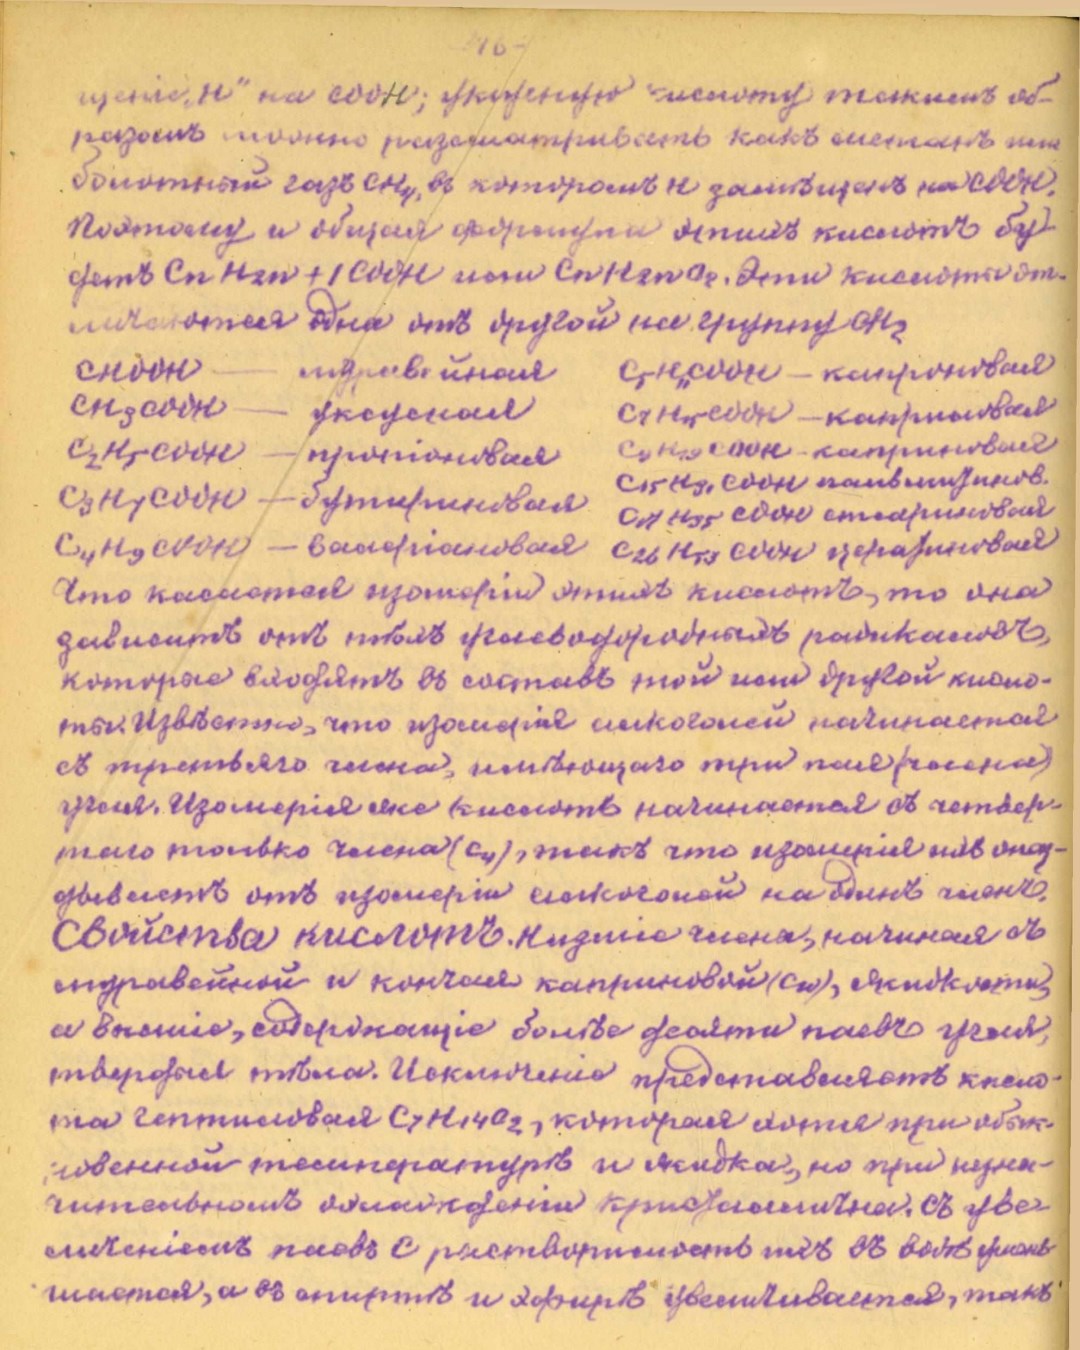 -16-
щеніе „Н" на COOH; уксусную кислоту такимъ об-
разомъ можно разсматривать какъ метанъ или
болотный газъ CH4, въ которомъ Н замѣщенъ на COOH.
Поэтому и общая формула этихъ кислотъ бу-
детъ CnH2n+1COOH или CnH2nO2. Эти кислоты от-
личаются одна отъ другой на группу CH2
CHOOH — муравейная C5H11COOH — капроновая
CH3COOH — уксусная C7H15COOH — каприловая
C2H5COOH — пропіоновая C9H19COOH - каприновая
C15H31COOH пальмитинов.
C3H7COOH — бутириновая C17H35COOH стеариновая
C4H9COOH — валеріановая C26H53COOH цератиновая
Что касается изомеріи этихъ кислотъ, то она
зависитъ отъ тѣхъ углеводородныхъ радикаловъ,
которые входятъ въ составъ той или другой кисло-
ты. Извѣстно, что изомерія алкоголей начинается
съ третьяго члена, имѣющаго три пая (члена)
угля. Изомерія же кислотъ начинается съ четвер-
таго только члена (C4), такъ что изомерія ихъ опаз-
дываетъ отъ изомеріи алкоголей на одинъ членъ.
Свойства кислотъ. Низшіе члены, начиная съ
муравейной и кончая каприновой (C10), жидкости,
а высшіе, содержащіе болѣе десяти паевъ угля,
твердыя тѣла. Исключеніе представляетъ кисло-
та гептиловая C7H14O2, которая хотя при обык-
новенной температурѣ и жидка, но при незна-
чительномъ охлажденіи кристаллична. Съ уве-
личеніемъ паевъ С растворимость ихъ въ водѣ умень-
шается, а въ спиртѣ и эфирѣ увеличивается, такъ